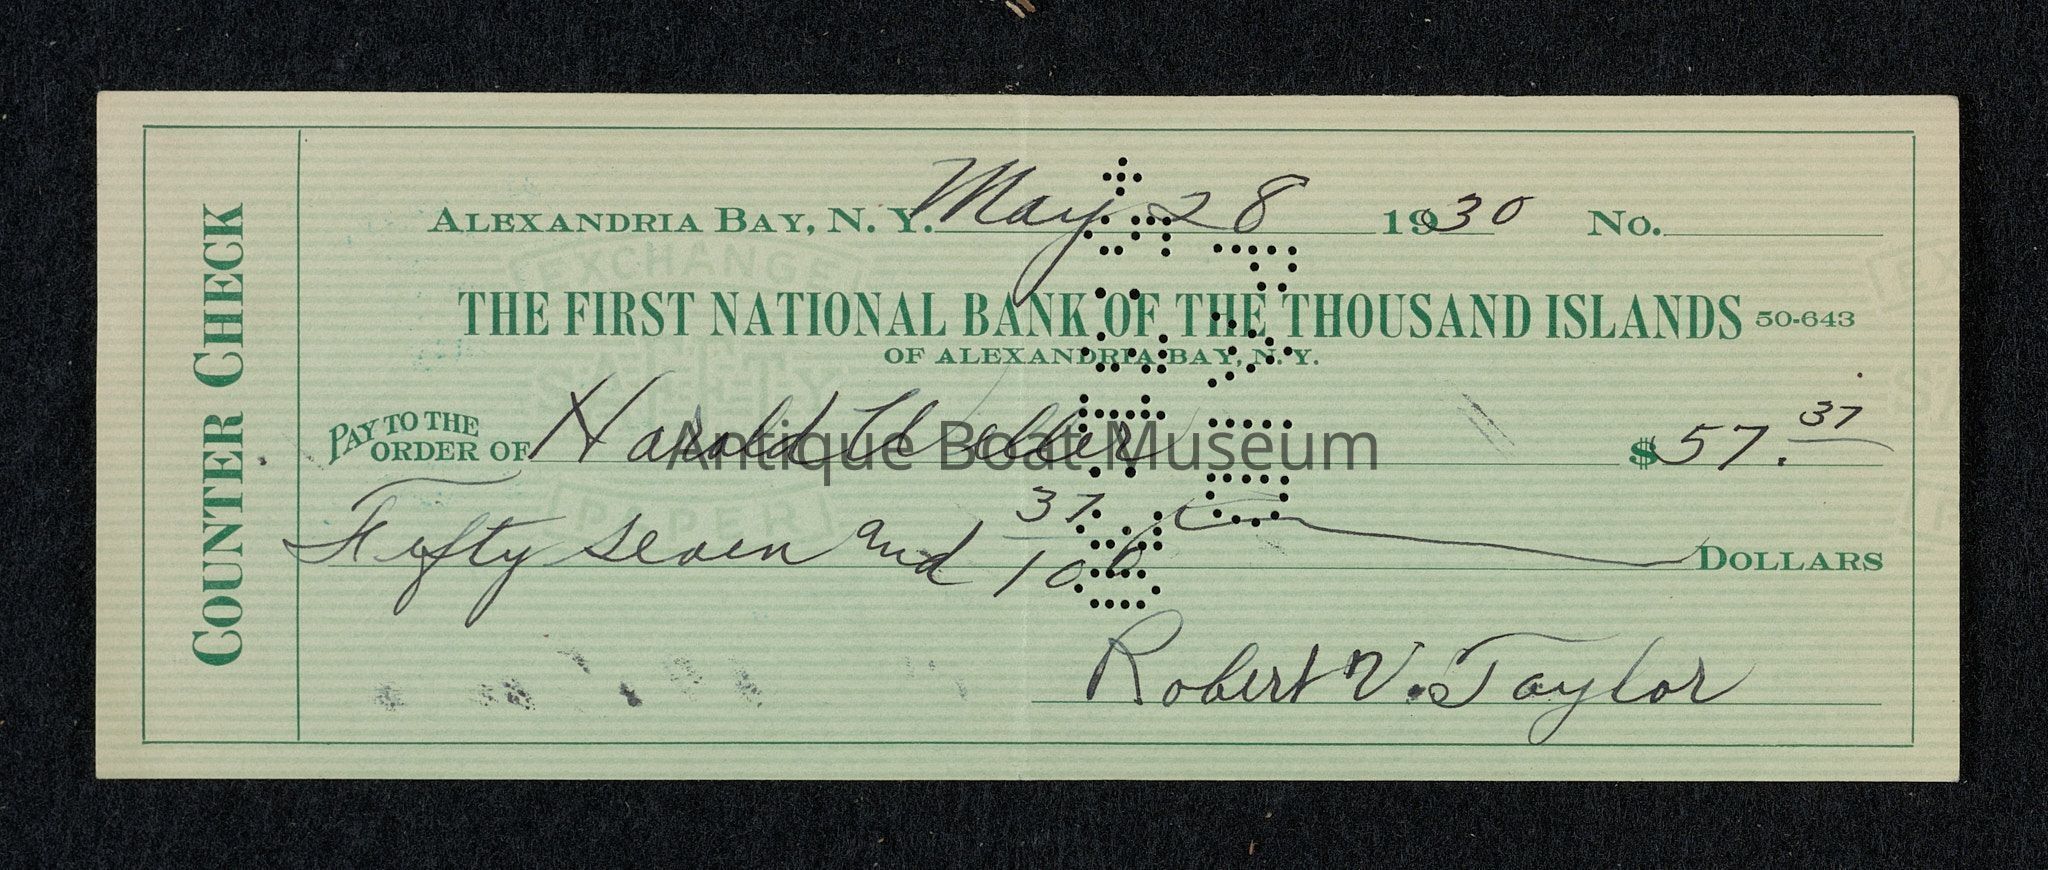 COUNTER CHECK
ALEXANDRIA BAY, N. Y. May 28 1930 No.
THE FIRST NATIONAL BANK OF THE THOUSAND ISLANDS 50-643
OF ALEXANDRIA BAY, N. Y.
PAY TO THE
ORDER OF Harold $57.37
Antique Boat Museum
Fifty seven and 37/100 DOLLARS
Robert V. Taylor
EXCHANGE
SAFETY
PAPER